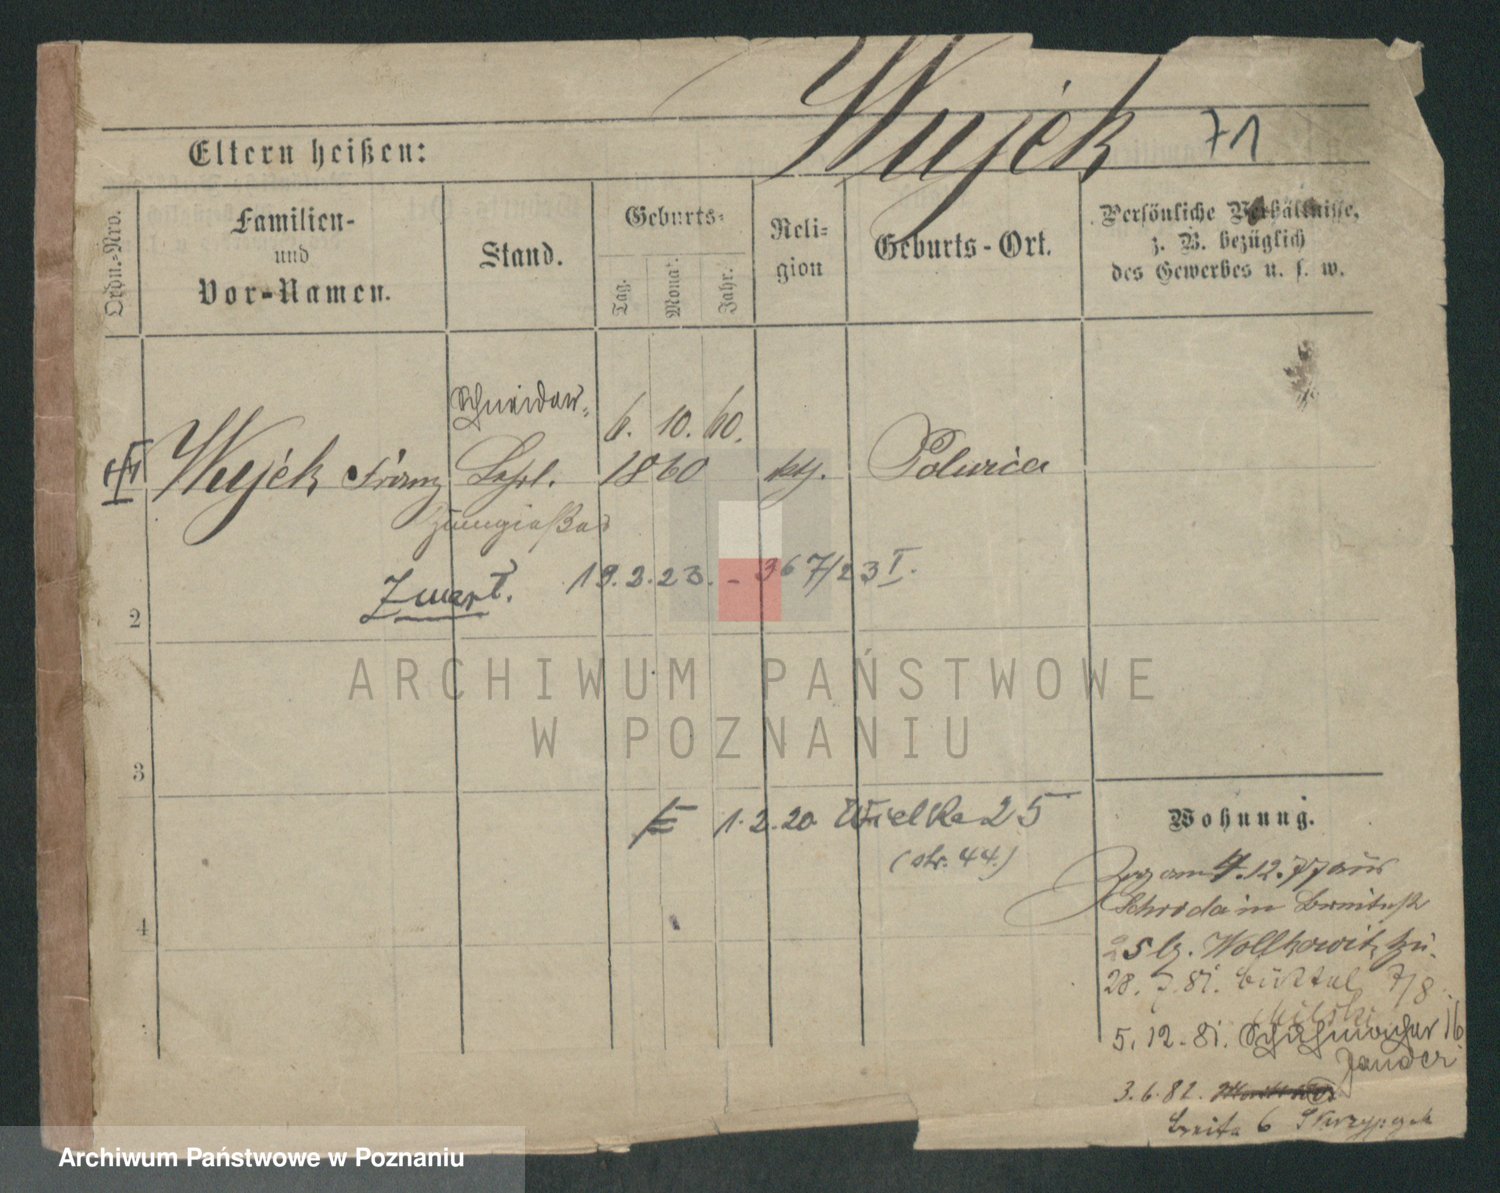 Wujek 71
Eltern heißen:
Ordn.-Nro.
Familien-
und
Vor-Namen.
Stand.
Geburts-
Tag.
Monat.
Jahr.
Reli-
gion
Geburts-Ort.
Persönliche Verhältnisse,
z. B. bezüglich
des Gewerbes u. s. w.
Schneider-
6. 10. 60.
Wujek Franz Lehrl. 1860 kth. Polwica
Zinngießer
Zmarł. 19.2.23. - 367/23 I.
2
ARCHIWUM PAŃSTWOWE
W POZNANIU
3
1.2.20 Wielka 25
(str. 44.)
Wohnung.
Zog am 4.12.77 aus
Schroda in Breitestr
25 bz. Wollkowitz zu.
28. 7. 81. Büttel 7/8
5. 12. 81. Schuhmacher 16
4
Jander
3. 6. 82.
Breite 6 Skrzypczak
Archiwum Państwowe w Poznaniu